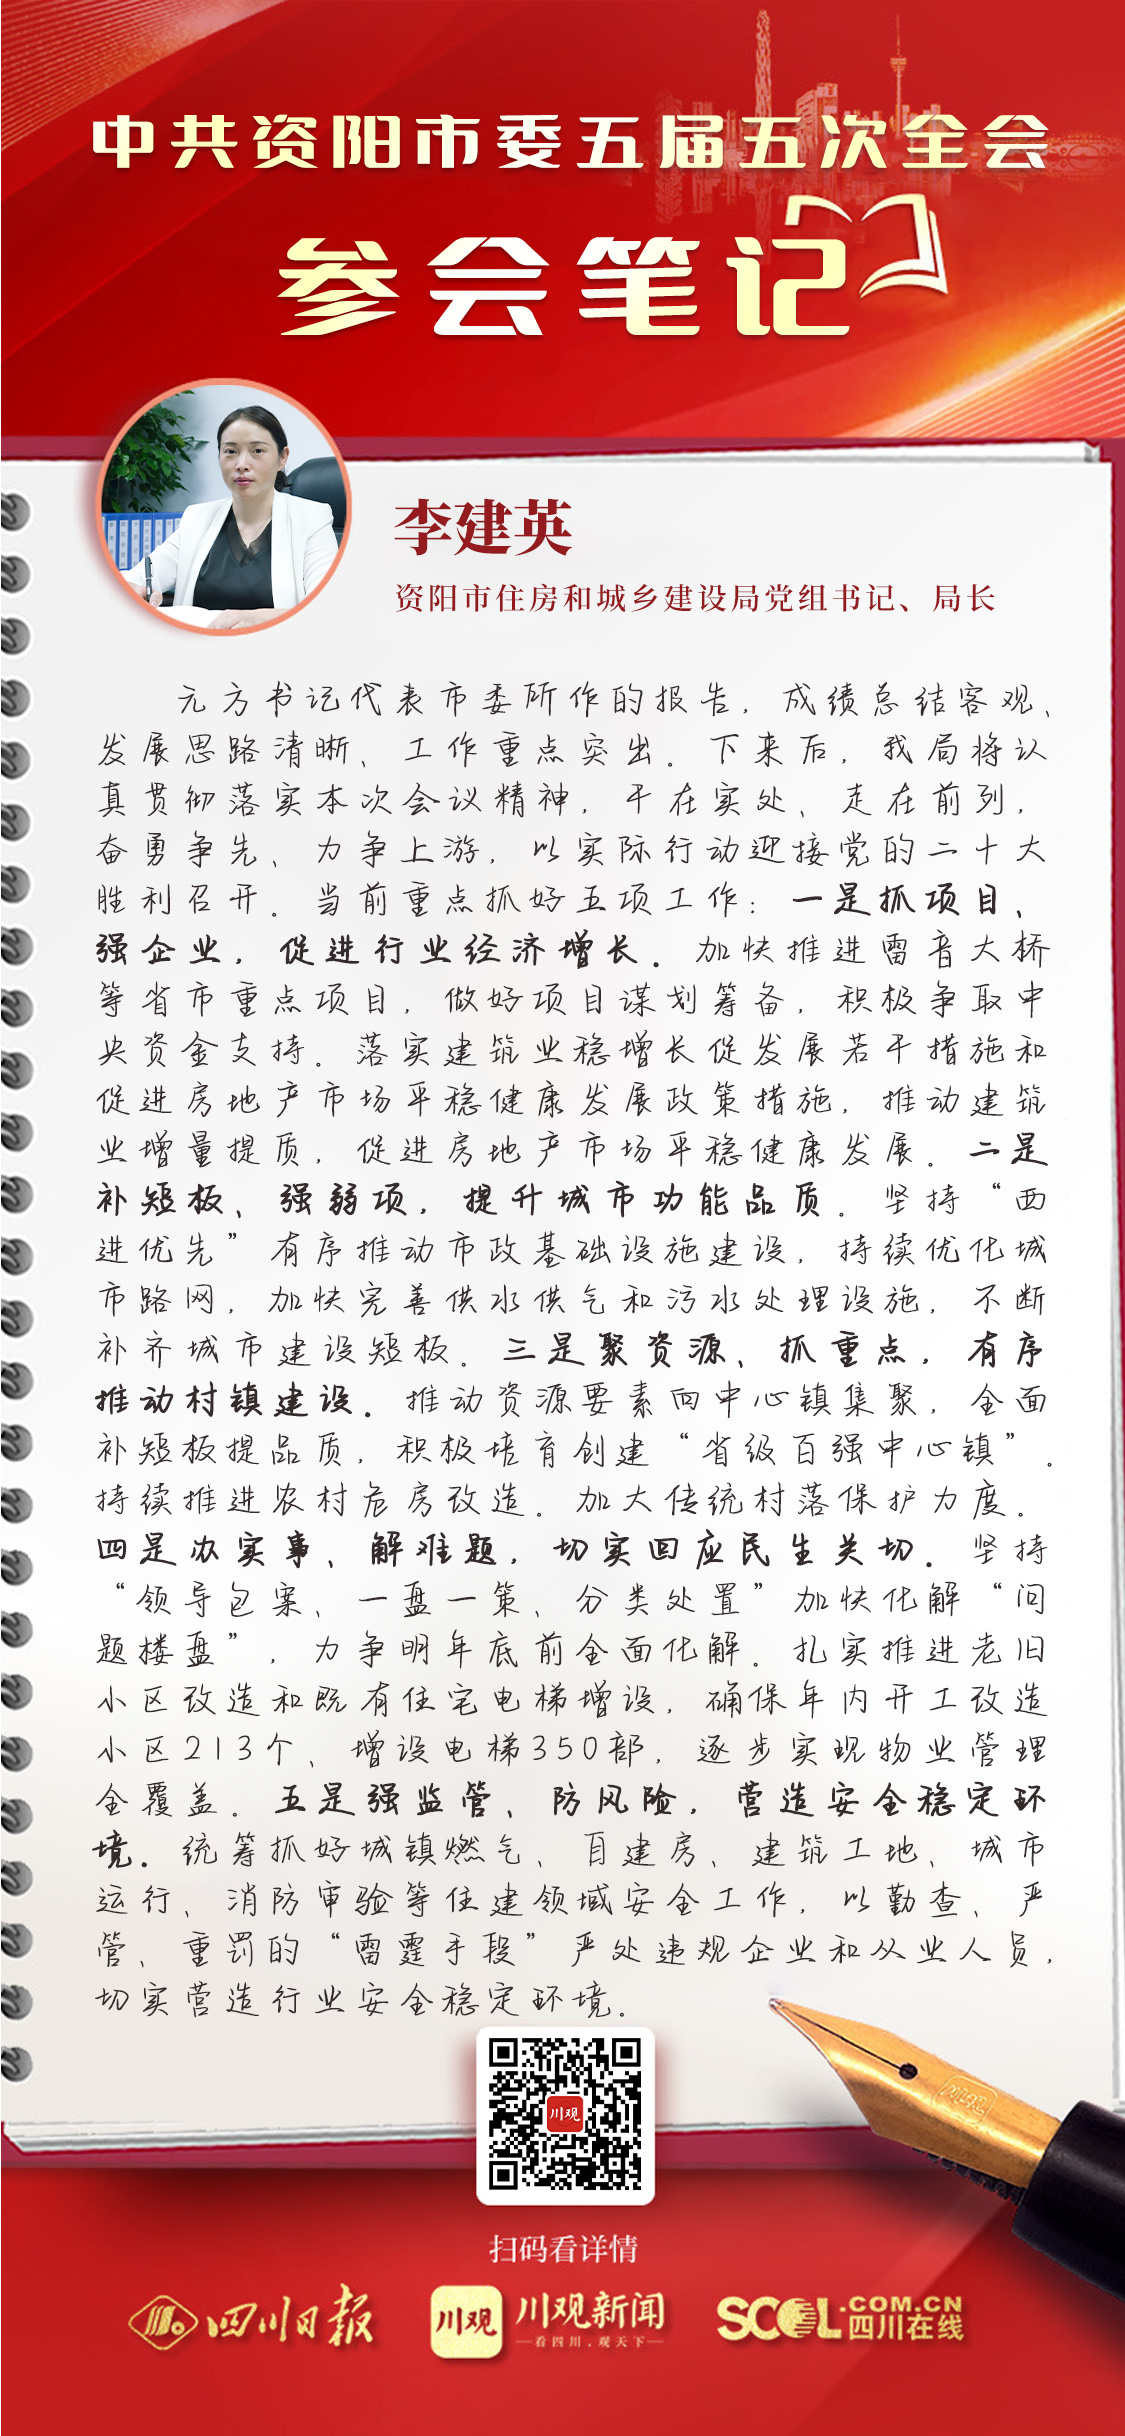 中共资阳市委五届五次全会
参会笔记
李建英
资阳市住房和城乡建设局党组书记、局长
元方书记代表市委所作的报告，成绩总结客观、
发展思路清晰、工作重点突出。下来后，我局将认
真贯彻落实本次会议精神，干在实处、走在前列，
奋勇争先、力争上游，以实际行动迎接党的二十大
胜利召开。当前重点抓好五项工作：一是抓项目、
强企业，促进行业经济增长。加快推进雷音大桥
等省市重点项目，做好项目谋划筹备，积极争取中
央资金支持。落实建筑业稳增长促发展若干措施和
促进房地产市场平稳健康发展政策措施，推动建筑
业增量提质，促进房地产市场平稳健康发展。二是
补短板、强弱项，提升城市功能品质。坚持“西
进优先”有序推动市政基础设施建设，持续优化城
市路网，加快完善供水供气和污水处理设施，不断
补齐城市建设短板。三是聚资源、抓重点，有序
推动村镇建设。推动资源要素向中心镇集聚，全面
补短板提品质，积极培育创建“省级百强中心镇”。
持续推进农村危房改造。加大传统村落保护力度。
四是办实事、解难题，切实回应民生关切。坚持
“领导包案、一盘一策、分类处置”加快化解“问
题楼盘”，力争明年底前全面化解。扎实推进老旧
小区改造和既有住宅电梯增设，确保年内开工改造
小区213个、增设电梯350部，逐步实现物业管理
全覆盖。五是强监管、防风险，营造安全稳定环
境。统筹抓好城镇燃气、自建房、建筑工地、城市
运行、消防审验等住建领域安全工作，以勤查、严
管、重罚的“雷霆手段”严处违规企业和从业人员，
切实营造行业安全稳定环境。
川观
扫码看详情
四川日报
川观 川观新闻
看四川，观天下
SCOL.COM.CN
四川在线